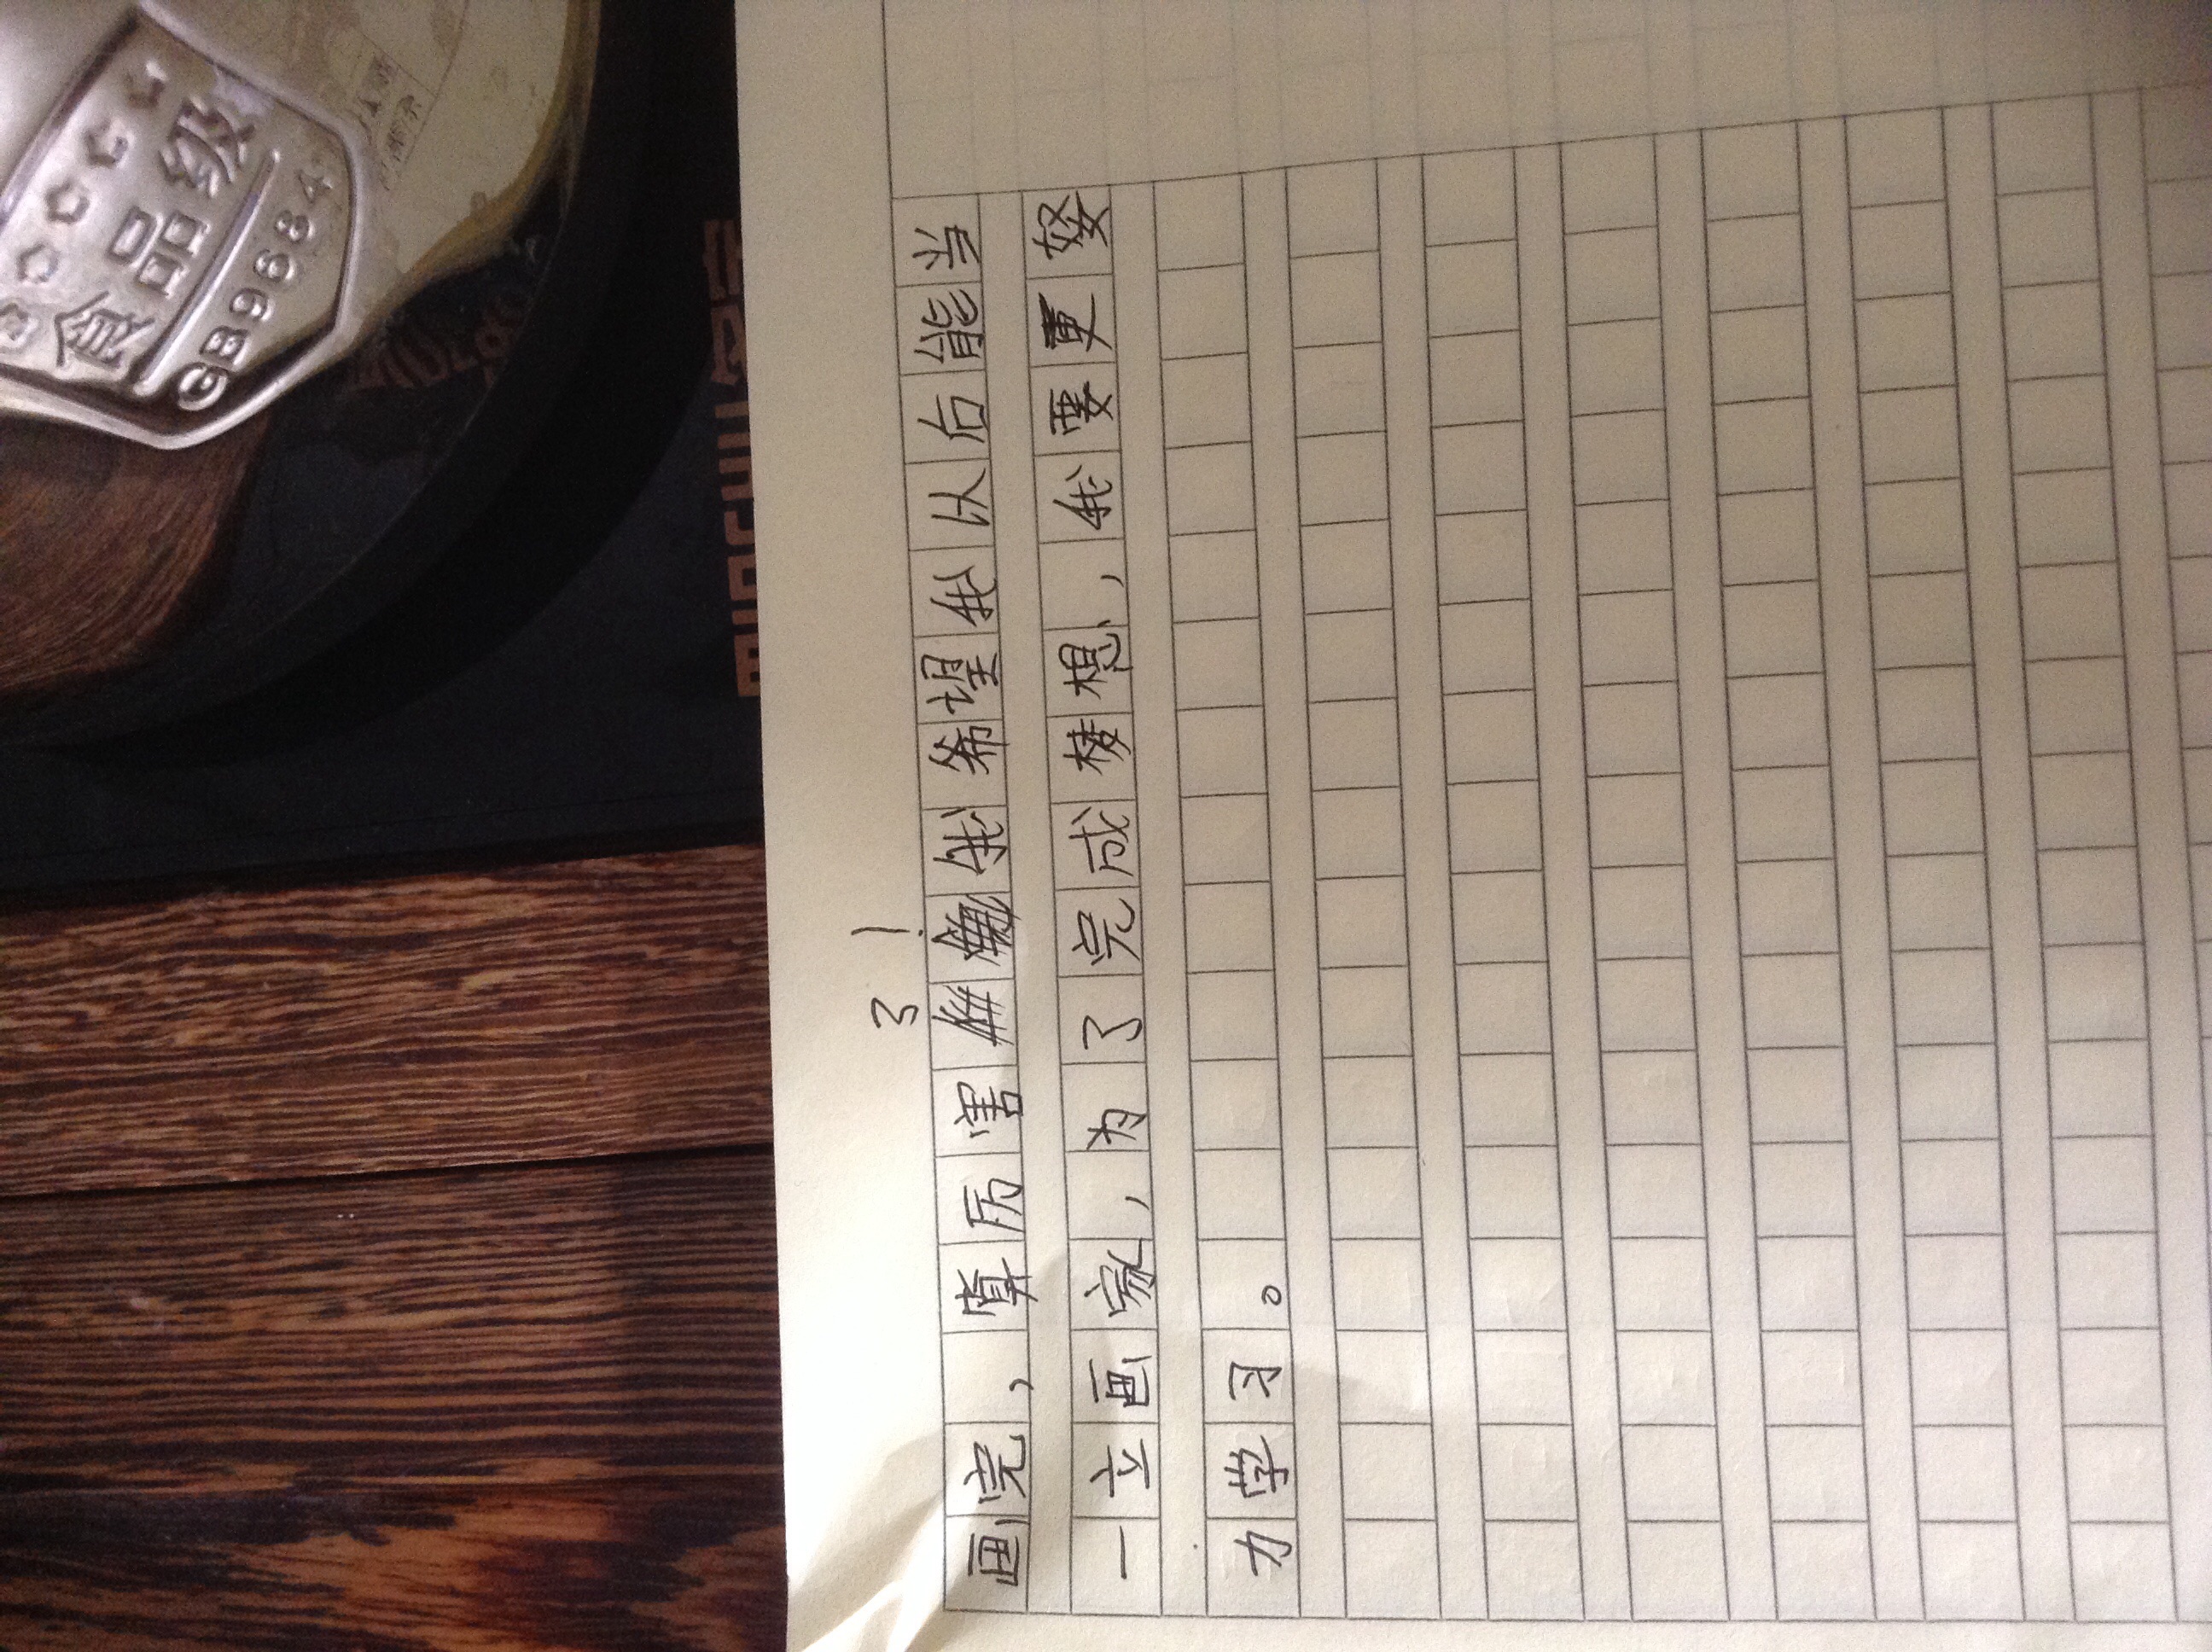 食品级
GB9684
了！
画完，真厉害我希望我以后能当
一立画家，为了完成梦想，我要更努
力学习。